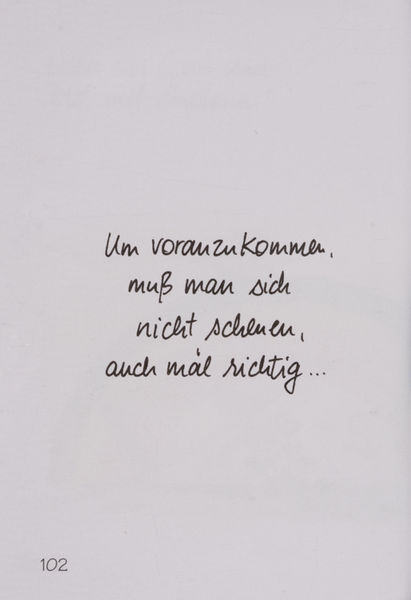 Um voranzukommen,
muß man sich
nicht scheuen,
auch mal richtig...
102